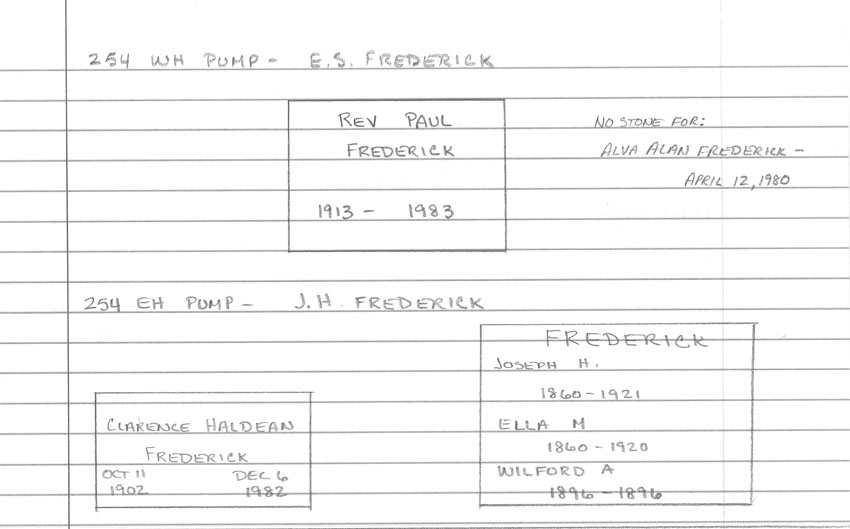 254 WH PUMP - E.S. FREDERICK
REV PAUL
FREDERICK
1913 - 1983
NO STONE FOR:
ALVA ALAN FREDERICK -
APRIL 12, 1980
254 EH PUMP - J.H. FREDERICK
CLARENCE HALDEAN
FREDERICK
OCT 11 DEC 6
1902 1982
FREDERICK
JOSEPH H.
1860 - 1921
ELLA M
1860 - 1920
WILFORD A
1896 - 1896